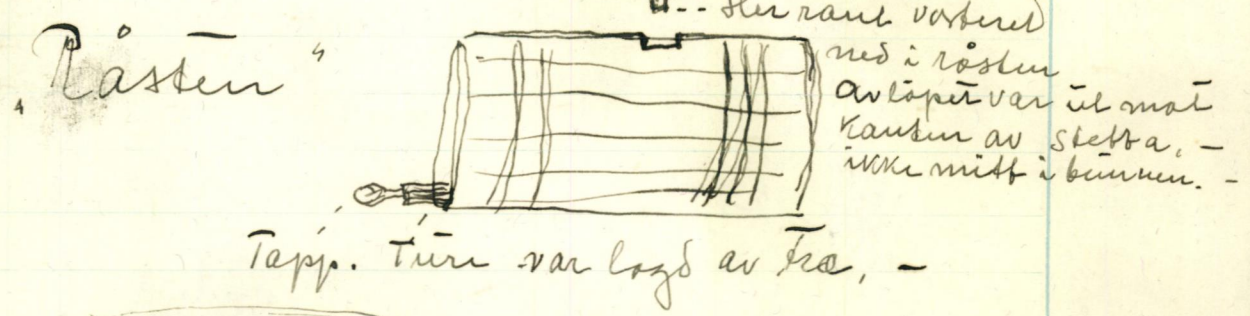 „Råsten“
Her rant vørteret
ned i røsten
Avløpet var ut mot
Kanten av stetta, –
ikke mitt i bunnen. –
Tapp. Turi var lagd av Træ, –